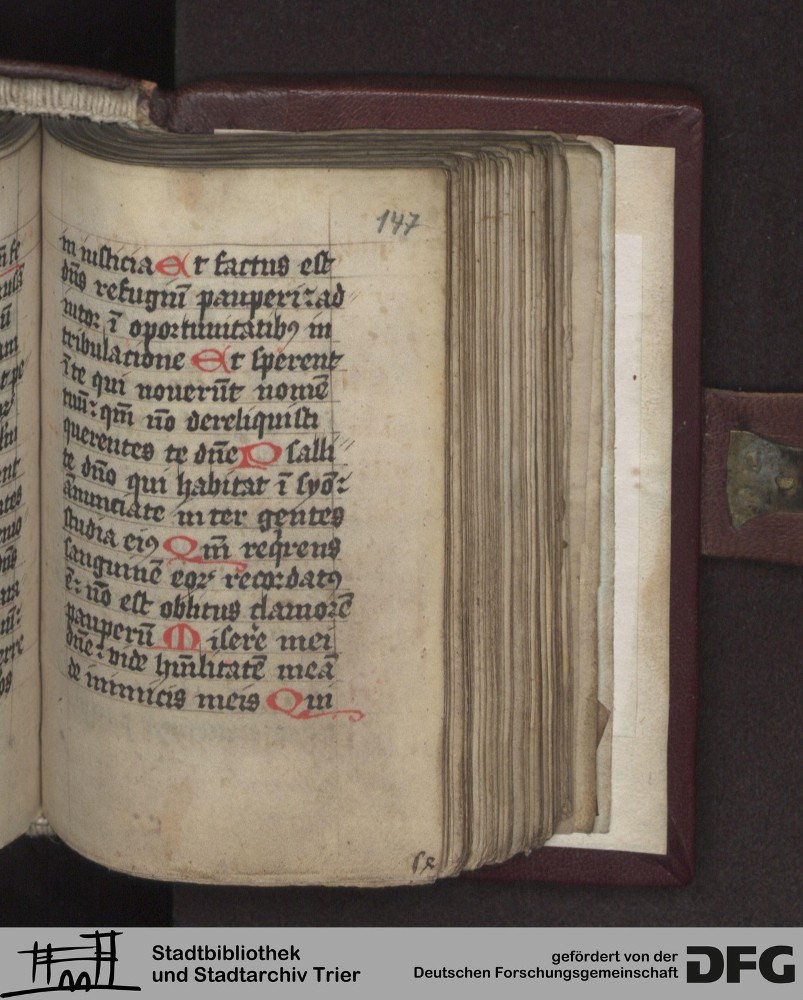 147
in iusticia Et factus est
dn̄s refugiū pauperi: ad
iutor ī oportunitatibꝯ in
tribulatione Et sperent
ī te qui nouerūt nomē
tuū: qm̄ nō dereliquisti
querentes te dn̄e Psalli
te dn̄o qui habitat ī syō:
ānunciate inter gentes
studia eiꝯ Qm̄ reqrens
sanguinē eoꝝ recordatꝯ
ē: nō est oblitus clamorē
pauperū Misere mei
dn̄e: vide hūilitatē meā
de inimicis meis Qui
Stadtbibliothek
und Stadtarchiv Trier
gefördert von der
Deutschen Forschungsgemeinschaft
DFG